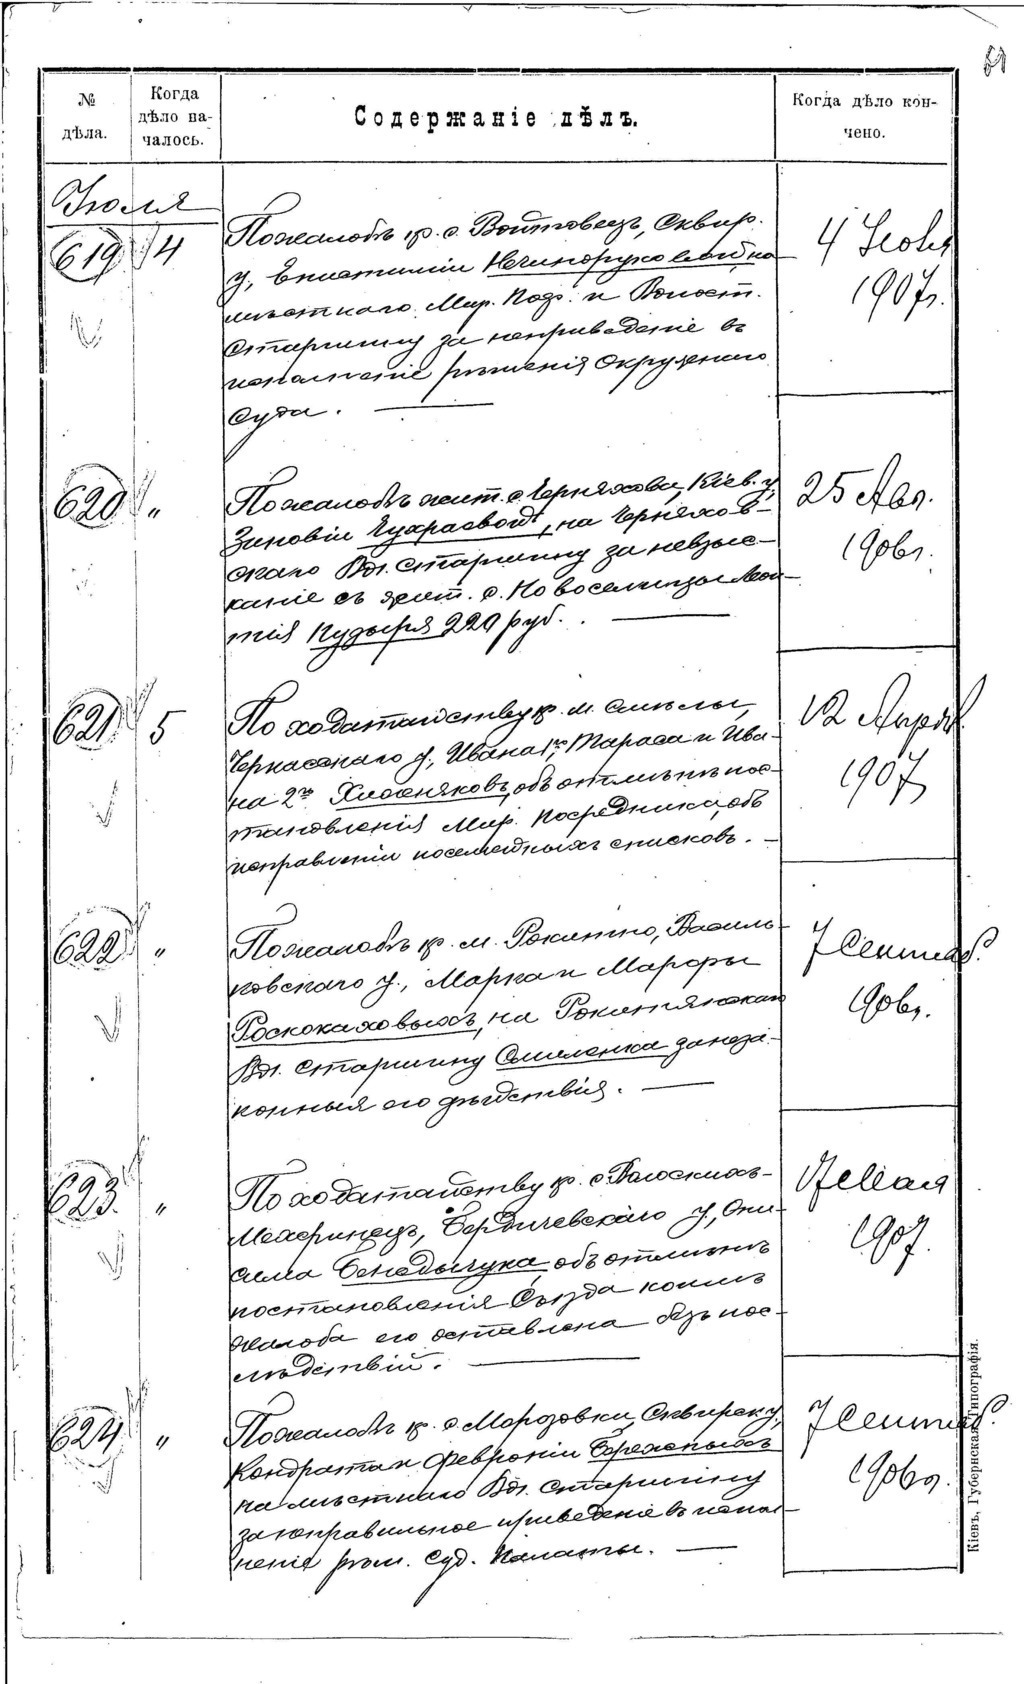 № дѣла.
Когда дѣло началось.
Содержаніе дѣлъ.
Когда дѣло кончено.
Іюля
619 4
По жалобѣ кр. с. Войтовецъ, Сквир.
у., Епистиміи Нечипоруковой, на
мѣстнаго Мир. Поср. и Волост.
Старшину за неприведеніе въ
исполненіе рѣшенія Окружнаго
Суда.
4 Іюня
1907г.
620 "
По жалобѣ жит. с. Черняхова, Кіев. у,
Зиновіи Чухраевой, на Черняхов-
скаго Вол. Старшину за невзыс-
каніе съ жит. с. Новоселицы
Кудыря 220 руб.
25 Авг.
1906г.
621 5
По ходатайству кр. м. Смѣлы,
Черкасскаго у., Ивана 1го, Тараса и Ива-
на 2го объ отмѣнѣ пос-
тановленія Мир. Посредника, объ
исправленіи посемейныхъ списковъ.
12 Апрѣля
1907
622 "
По жалобѣ кр. м. Рокитно, Василь-
ковскаго у., Марка и Марфы
на Рокитнянскаго
Вол. Старшину Смиленка за неза-
конныя его дѣйствія.
7 Сентяб.
1906г.
623. "
По ходатайству кр. с. Волоскихъ-
Мехеринецъ, Бердичевскаго у., Они-
сима Бенедычука, объ отмѣнѣ
постановленія Съѣзда коимъ
жалоба его оставлена безъ пос-
лѣдствій.
Мая
1907.
624 "
По жалобѣ кр. с. Морозовки, Сквирск. у,
Кондрата и Февроніи Бережныхъ
на мѣстнаго Вол. Старшину
за неправильное приведеніе въ испол-
неніе рѣш. Суд. Палаты.
7 Сентяб.
1906г.
Кіевъ, Губернская Типографія.